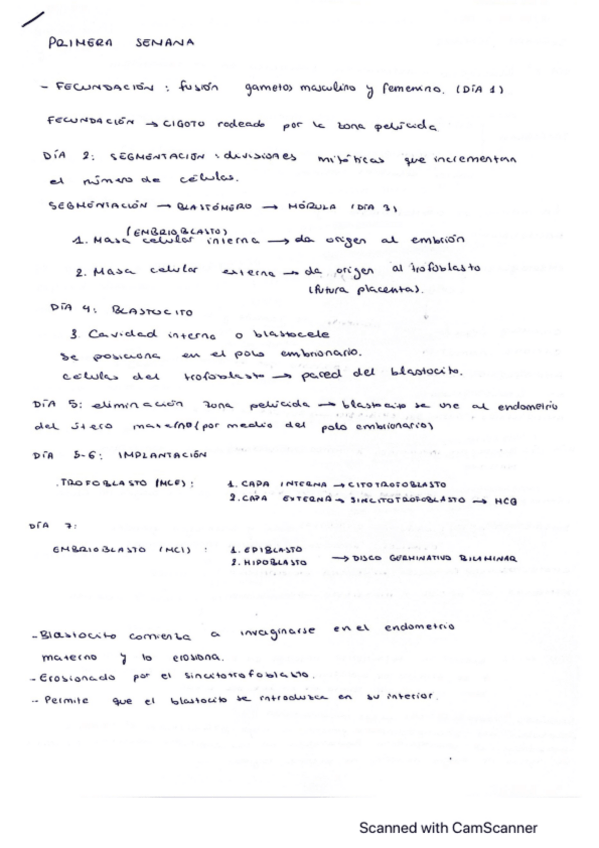 PRIMERA SEMANA
- FECUNDACIÓN : fusión gametos masculino y femenino. (DÍA 1)
FECUNDACIÓN → CIGOTO rodeado por la zona pelúcida
DÍA 2: SEGMENTACIÓN : divisiones mitóticas que incrementan
el número de células.
SEGMENTACIÓN → BLASTÓMERO → MÓRULA (DÍA 3)
(EMBRIOBLASTO)
1. Masa celular interna → da origen al embrión
2. Masa celular externa → da origen al trofoblasto
(futura placenta).
DÍA 4: BLASTOCITO
3. Cavidad interna o blastocele
Se posiciona en el polo embrionario.
células del trofoblasto → pared del blastocito.
DÍA 5: eliminación zona pelúcida → blastocito se une al endometrio
del útero materno (por medio del polo embrionario)
DÍA 5-6: IMPLANTACIÓN
.TROFOBLASTO (MCE) : 1. CAPA INTERNA → CITOTROFOBLASTO
2. CAPA EXTERNA → SINCITOTROFOBLASTO → HCG
DÍA 7:
EMBRIOBLASTO (MCI) : 1. EPIBLASTO
2. HIPOBLASTO → DISCO GERMINATIVO BILAMINAR
- Blastocito comienza a invaginarse en el endometrio
materno y lo erosiona.
- Erosionado por el sincitotrofoblasto.
- Permite que el blastocito se introduzca en su interior.
Scanned with CamScanner